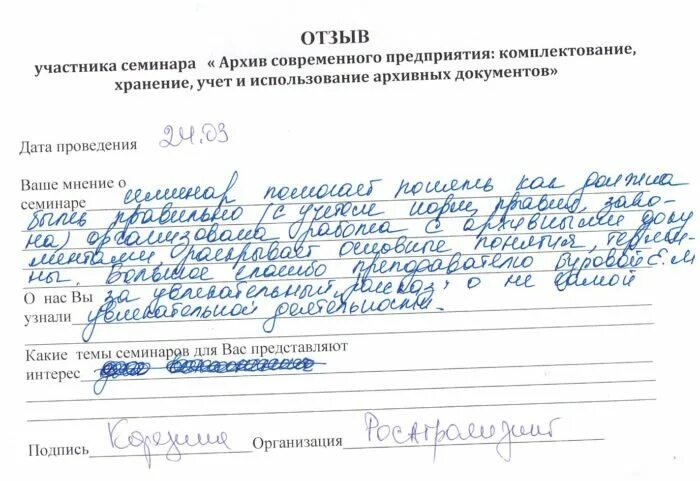 ОТЗЫВ
участника семинара « Архив современного предприятия: комплектование,
хранение, учет и использование архивных документов»
Дата проведения 24.03
Ваше мнение о
семинаре семинар помогает понять как должна
быть правильно (с учетом норм, правил, зако-
на) организована работа с архивными доку-
ментами, раскрывает основные понятия, терми-
ны. Большое спасибо преподавателю Буровой Е.М
О нас Вы за увлекательный рассказ о не самой
узнали увлекательной деятельности.
Какие темы семинаров для Вас представляют
интерес
Подпись Организация